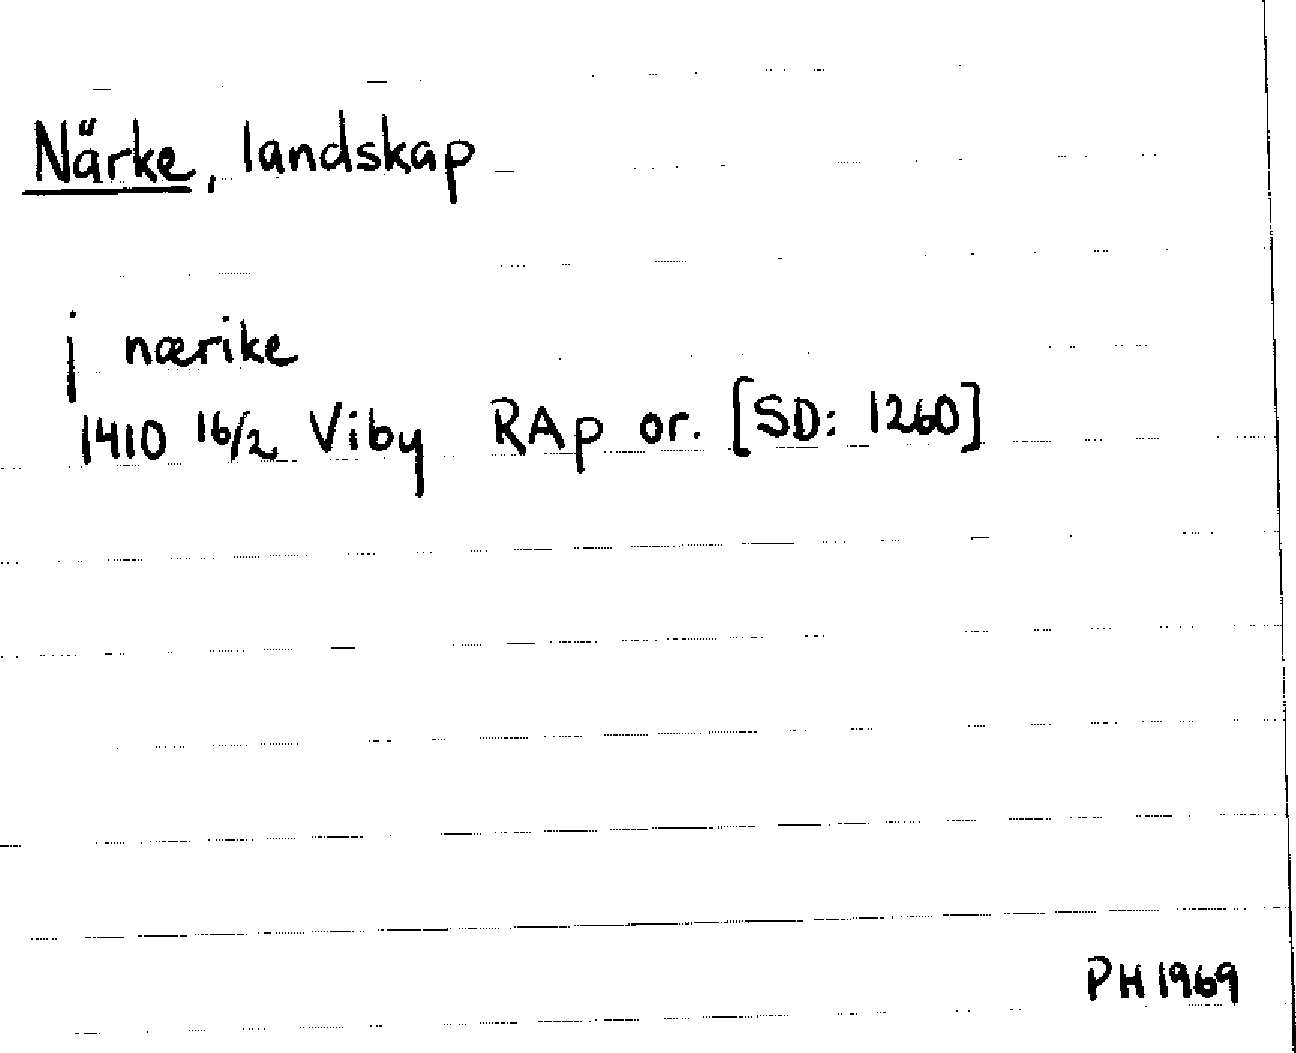 Närke, landskap
j nærike
1410 16/2 Viby RAp or. [SD: 1260]
PH 1969